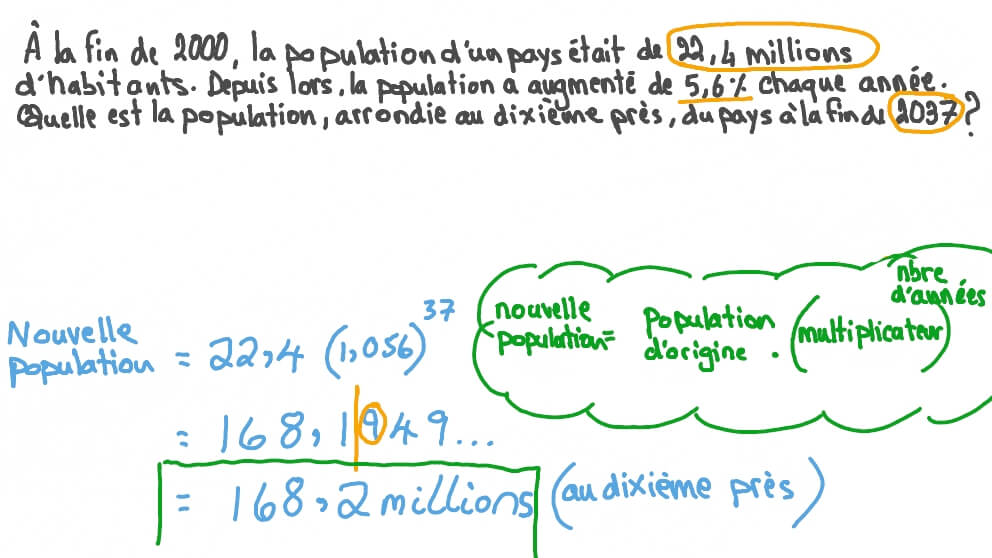 À la fin de 2000, la population d'un pays était de 22,4 millions
d'habitants. Depuis lors, la population a augmenté de 5,6% chaque année.
Quelle est la population, arrondie au dixième près, du pays à la fin de 2037?
nouvelle population = Population d'origine . (multiplicateur) nbre d'années
Nouvelle population = 22,4 (1,056)^37
= 168,1949...
= 168,2 millions (au dixième près)